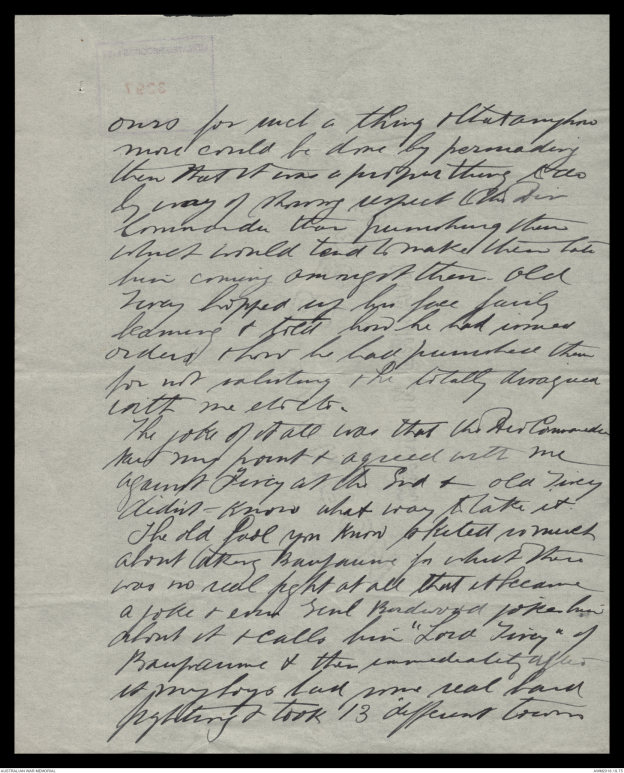 ours for such a thing & that anyhow
more could be done by persuading
them that it was a proper thing to do
by way of showing respect to the Div
Commander than punishing them
which would tend to make them hate
him coming amongst them. Old
Tivey hopped up his face fairly
beaming & told how he had issued
orders & how he had punished them
for not saluting & he totally disagreed
with me etc etc.
The joke of it all was that the Div Commander
my point & agreed with me
against Tivey at the End & old Tivey
didn't know what way to take it.
The old fool you know skited so much
about taking Bapaume for which there
was no real fight at all that it became
a joke & even Genl Birdwood jokes him
about it & calls him "Lord Tivey" of
Bapaume & then immediately after
it my boys had some real hard
fighting & took 13 different towns
3297
AUSTRALIAN WAR MEMORIAL